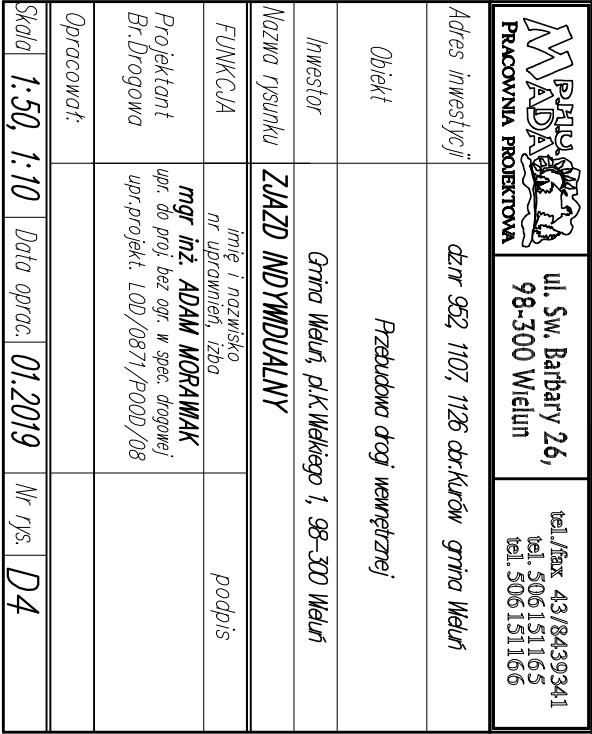 P.H.U.
MADA
PRACOWNIA PROJEKTOWA
ul. Sw. Barbary 26,
98-300 Wielun
tel./fax 43/8439341
tel. 506151165
tel. 506151166
Adres inwestycji
dz.nr 952, 1107, 1126 obr.Kurów gmina Wieluń
Obiekt
Przebudowa drogi wewnętrznej
Inwestor
Gmina Wieluń, pl.K.Wielkiego 1, 98-300 Wieluń
Nazwa rysunku
ZJAZD INDYWIDUALNY
FUNKCJA
imię i nazwisko
nr uprawnień, izba
podpis
Projektant
Br.Drogowa
mgr inż. ADAM MORAWIAK
upr. do proj. bez ogr. w spec. drogowej
upr.projekt. LOD/0871/POOD/08
Opracował:
Skala 1:50, 1:10 Data oprac. 01.2019 Nr rys. D4